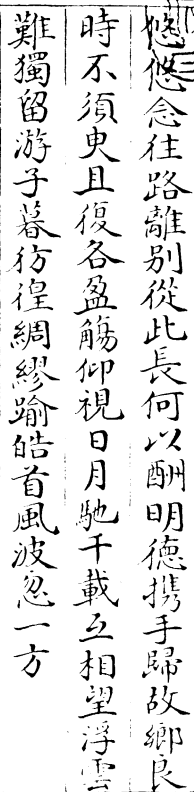 悠悠念往路離別從此長何以酬明德携手歸故鄉良
時不須臾且復各盈觴仰視日月馳千載互相望浮雲
難獨留游子暮彷徨綢繆踰皓首風波忽一方